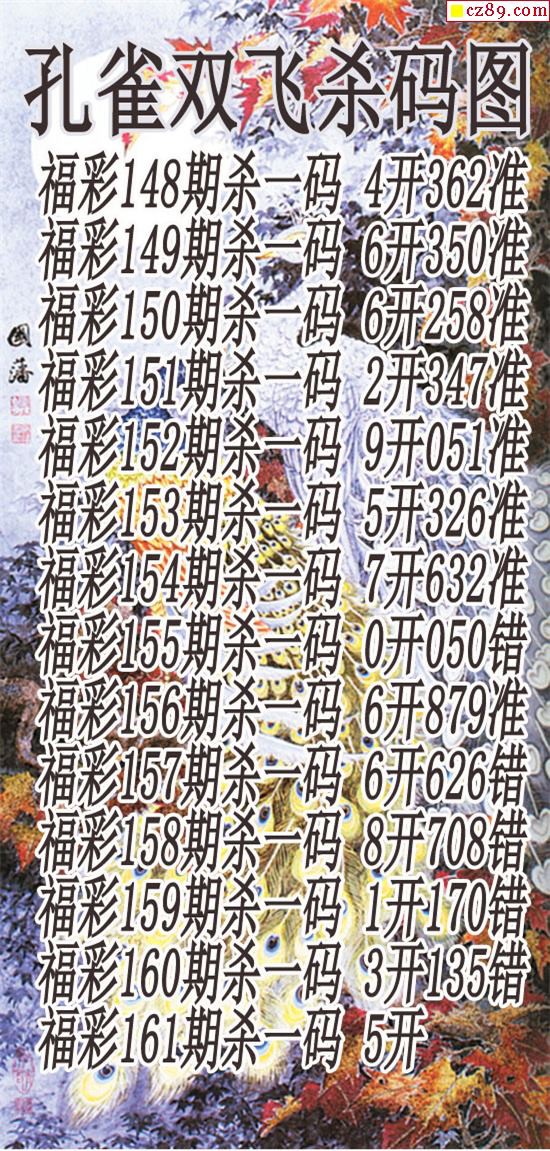 cz89.com
孔雀双飞杀码图
福彩148期杀一码 4开362准
福彩149期杀一码 6开350准
福彩150期杀一码 6开258准
福彩151期杀一码 2开347准
福彩152期杀一码 9开051准
福彩153期杀一码 5开326准
福彩154期杀一码 7开632准
福彩155期杀一码 0开050错
福彩156期杀一码 6开879准
福彩157期杀一码 6开626错
福彩158期杀一码 8开708错
福彩159期杀一码 1开170错
福彩160期杀一码 3开135错
福彩161期杀一码 5开
國藩